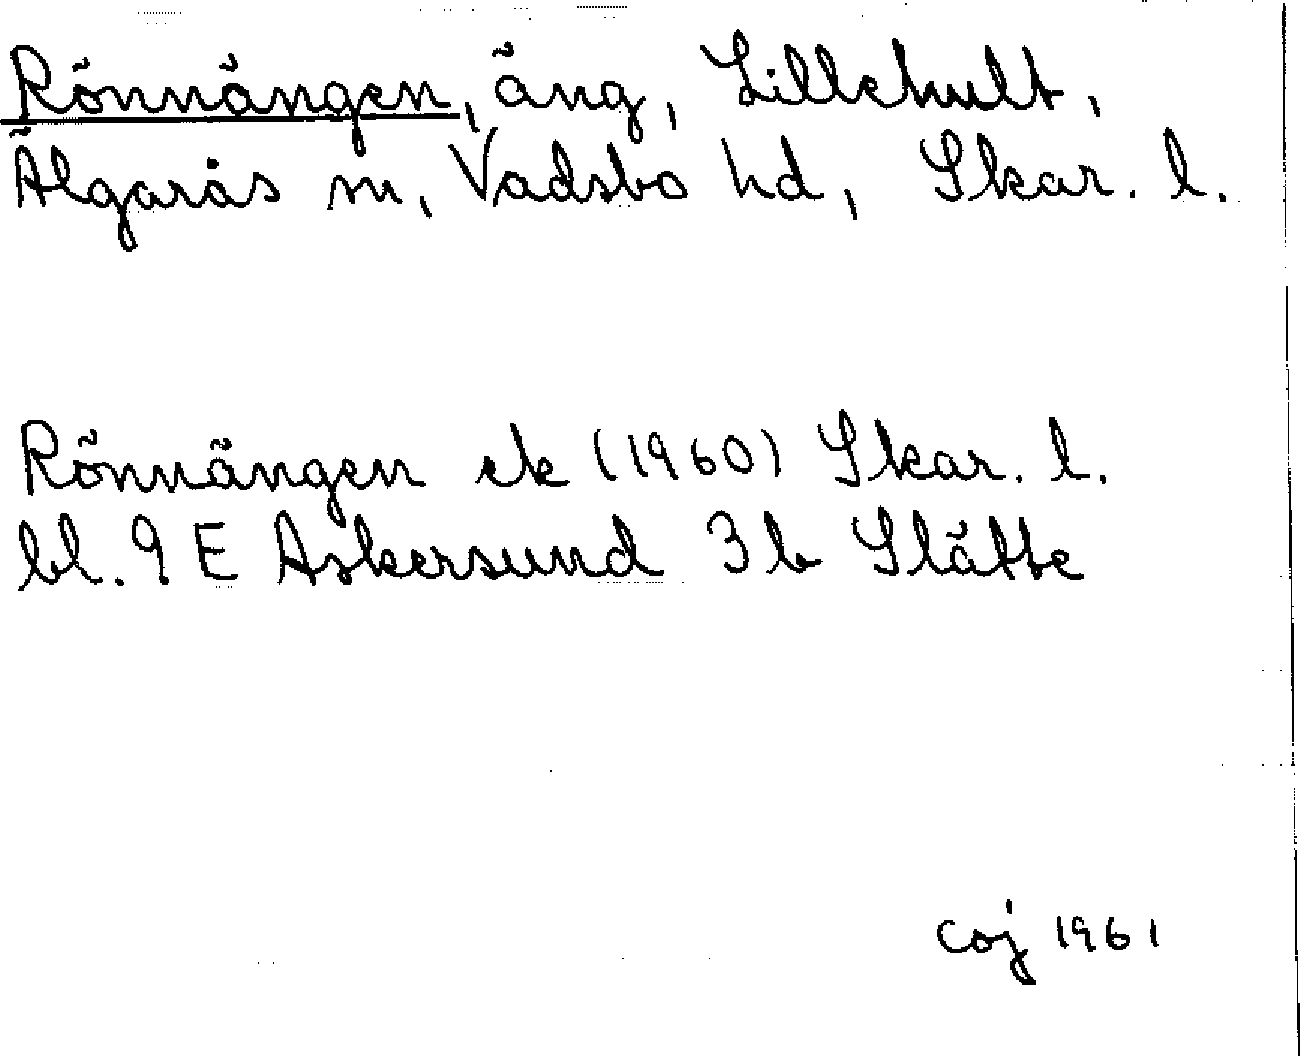 Rönnängen, äng, Lillehult,
Älgarås sn, Vadsbo hd, Skar. l.
Rönnängen ek (1960) Skar. l.
bl. 9 E Askersund 3 b Slätte
coj 1961